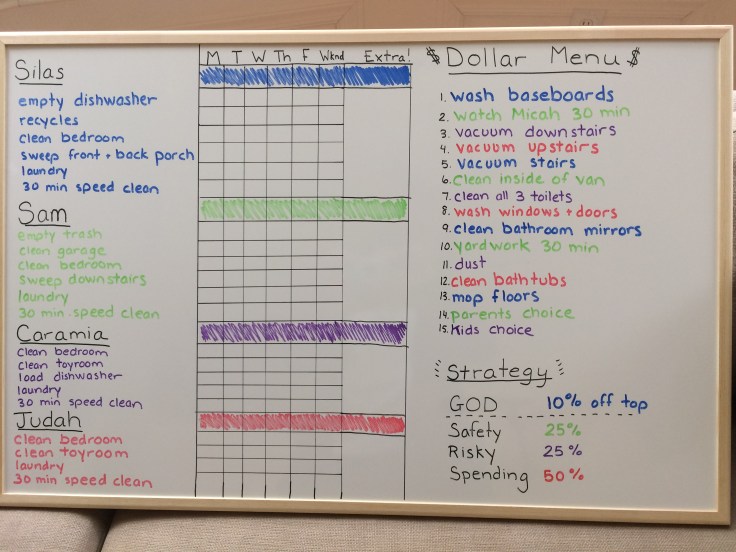 M T W Th F Wknd Extra!
Silas
empty dishwasher
recycles
clean bedroom
sweep front + back porch
laundry
30 min speed clean
Sam
empty trash
clean garage
clean bedroom
sweep downstairs
laundry
30 min speed clean
Caramia
clean bedroom
clean toyroom
load dishwasher
laundry
30 min speed clean
Judah
clean bedroom
clean toyroom
laundry
30 min speed clean
$ Dollar Menu $
1. wash baseboards
2. watch Micah 30 min
3. vacuum downstairs
4. vacuum upstairs
5. vacuum stairs
6. clean inside of van
7. clean all 3 toilets
8. wash windows + doors
9. clean bathroom mirrors
10. yardwork 30 min
11. dust
12. clean bathtubs
13. mop floors
14. parents choice
15. kids choice
Strategy
GOD 10% off top
Safety 25%
Risky 25%
Spending 50%